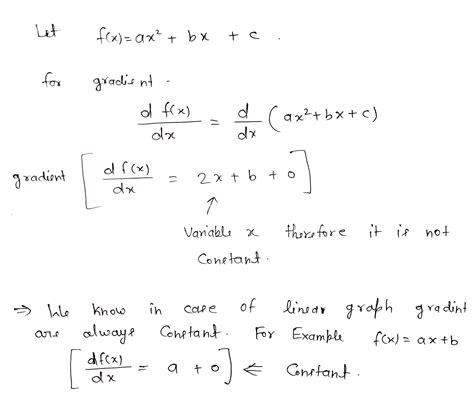 Let f(x) = ax² + bx + c .
for gradient -
d f(x)/dx = d/dx (ax² + bx + c)
gradient [ d f(x)/dx = 2x + b + 0 ]
↑
Variable x therefore it is not
Constant .
⇒ We know in case of linear graph gradint
are always Constant . For Example f(x) = ax+b
[ df(x)/dx = a + 0 ] ⇐ Constant .